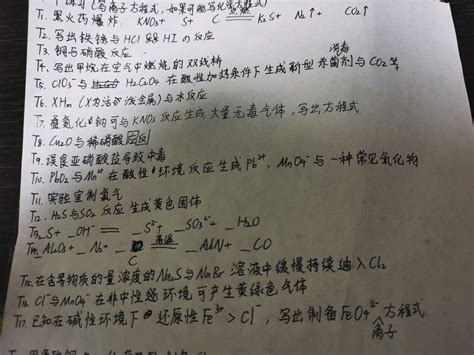 练习(写离子方程式,如果可能写化学方程式)
T1. 黑火药爆炸, KNO3+ S+ C 点燃 K2S+ N2↑+ CO2↑
T2. 写出铁锈与HCl 和 HI 的反应
T3. 铜与硝酸反应
T4. 写出甲烷在空气中燃烧的双线桥
T5. ClO3⁻与 H2C2O4 在酸性加热条件下生成新型消毒杀菌剂与CO2等
T6. XHn (X为活泼金属)与水反应
T7. 叠氮化钠可与KNO3反应生成大量无毒气体,写出方程式
T8. Cu2O与稀硝酸反应
T9. 误食亚硝酸盐导致中毒
T10. PbO2与Mn²⁺在酸性环境反应生成Pb²⁺、MnO4⁻与一种常见氧化物
T11. 实验室制氯气
T12. H2S与SO2 反应生成黄色固体
T13. _S+ _OH⁻ = _S²⁻+ _SO3²⁻+ _H2O
T14. _Al2O3+ _N2+ _C 高温 _AlN+ _CO
T15. 在含等物质的量浓度的Na2S与NaBr 溶液中缓慢持续通入Cl2
T16. Cl⁻与MnO4⁻在非中性环境可产生黄绿色气体
T17. 已知在碱性环境下 还原性Fe³⁺>Cl⁻, 写出制备FeO4²⁻离子方程式